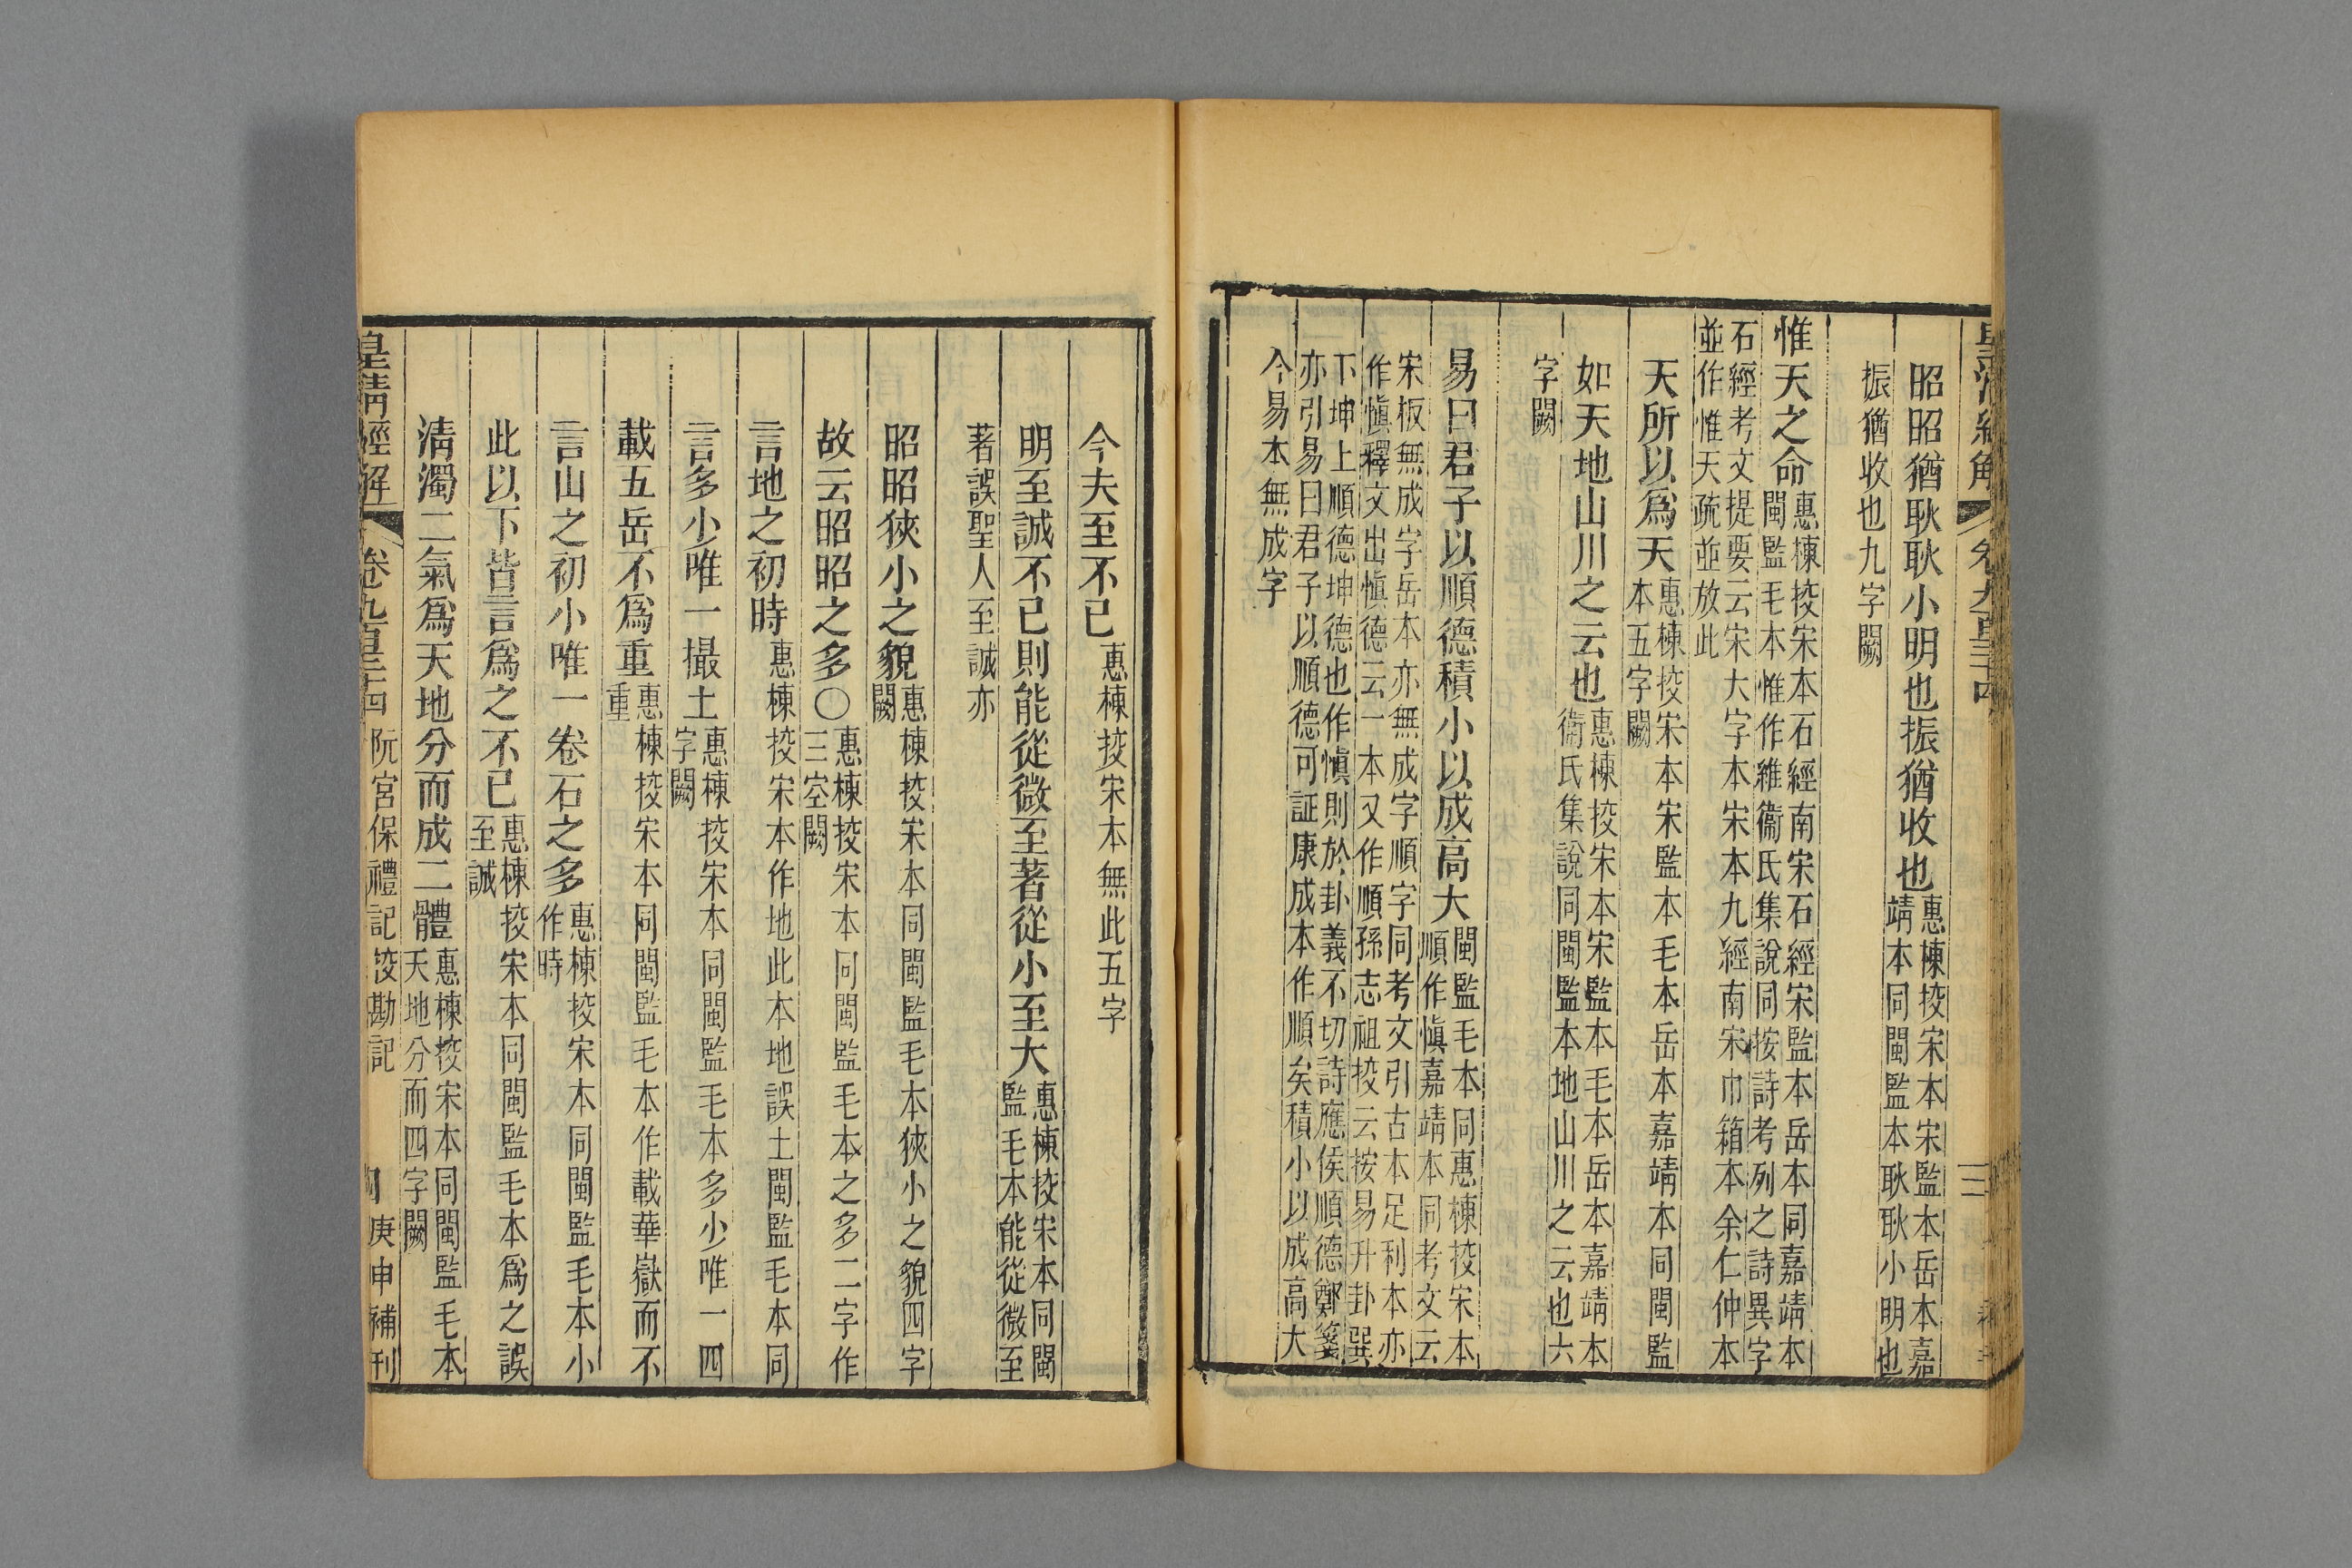 皇清經解 卷九百三十四 三
昭昭猶耿耿小明也振猶收也惠棟挍宋本宋監本岳本嘉
靖本同閩監本耿耿小明也
振猶收也九字闕
惟天之命惠棟挍宋本石經南宋石經宋監本岳本同嘉靖本
閩監毛本惟作維衞氏集說同按詩考列之詩異字
石經考文提要云宋大字本宋本九經南宋巾箱本余仁仲本
並作惟天疏並放此
天所以爲天惠棟挍宋本宋監本毛本岳本嘉靖本同閩監
本五字闕
如天地山川之云也惠棟挍宋本宋監本毛本岳本嘉靖本
衞氏集說同閩監本地山川之云也六
字闕
易曰君子以順德積小以成高大閩監毛本同惠棟挍宋本
順作愼嘉靖本同考文云
宋板無成字岳本亦無成字順字同考文引古本足利本亦
作愼釋文出愼德云一本又作順孫志祖挍云按易升卦巽
下坤上順德坤德也作愼則於卦義不切詩應侯順德鄭箋
亦引易曰君子以順德可証康成本作順矣積小以成高大
今易本無成字
今夫至不已惠棟挍宋本無此五字
明至誠不已則能從微至著從小至大惠棟挍宋本同閩
監毛本能從微至
著誤聖人至誠亦
昭昭狹小之貌惠棟挍宋本同閩監毛本狹小之貌四字
闕
故云昭昭之多〇惠棟挍宋本同閩監毛本之多二字作
三空闕
言地之初時惠棟挍宋本作地此本地誤土閩監毛本同
言多少唯一撮土惠棟挍宋本同閩監毛本多少唯一四
字闕
載五岳不爲重惠棟挍宋本同閩監毛本作載華嶽而不
重
言山之初小唯一卷石之多惠棟挍宋本同閩監毛本小
作時
此以下皆言爲之不已惠棟挍宋本同閩監毛本爲之誤
至誠
清濁二氣爲天地分而成二體惠棟挍宋本同閩監毛本
天地分而四字闕
皇清經解 卷九百三十四 阮宮保禮記挍勘記 庚申補刊